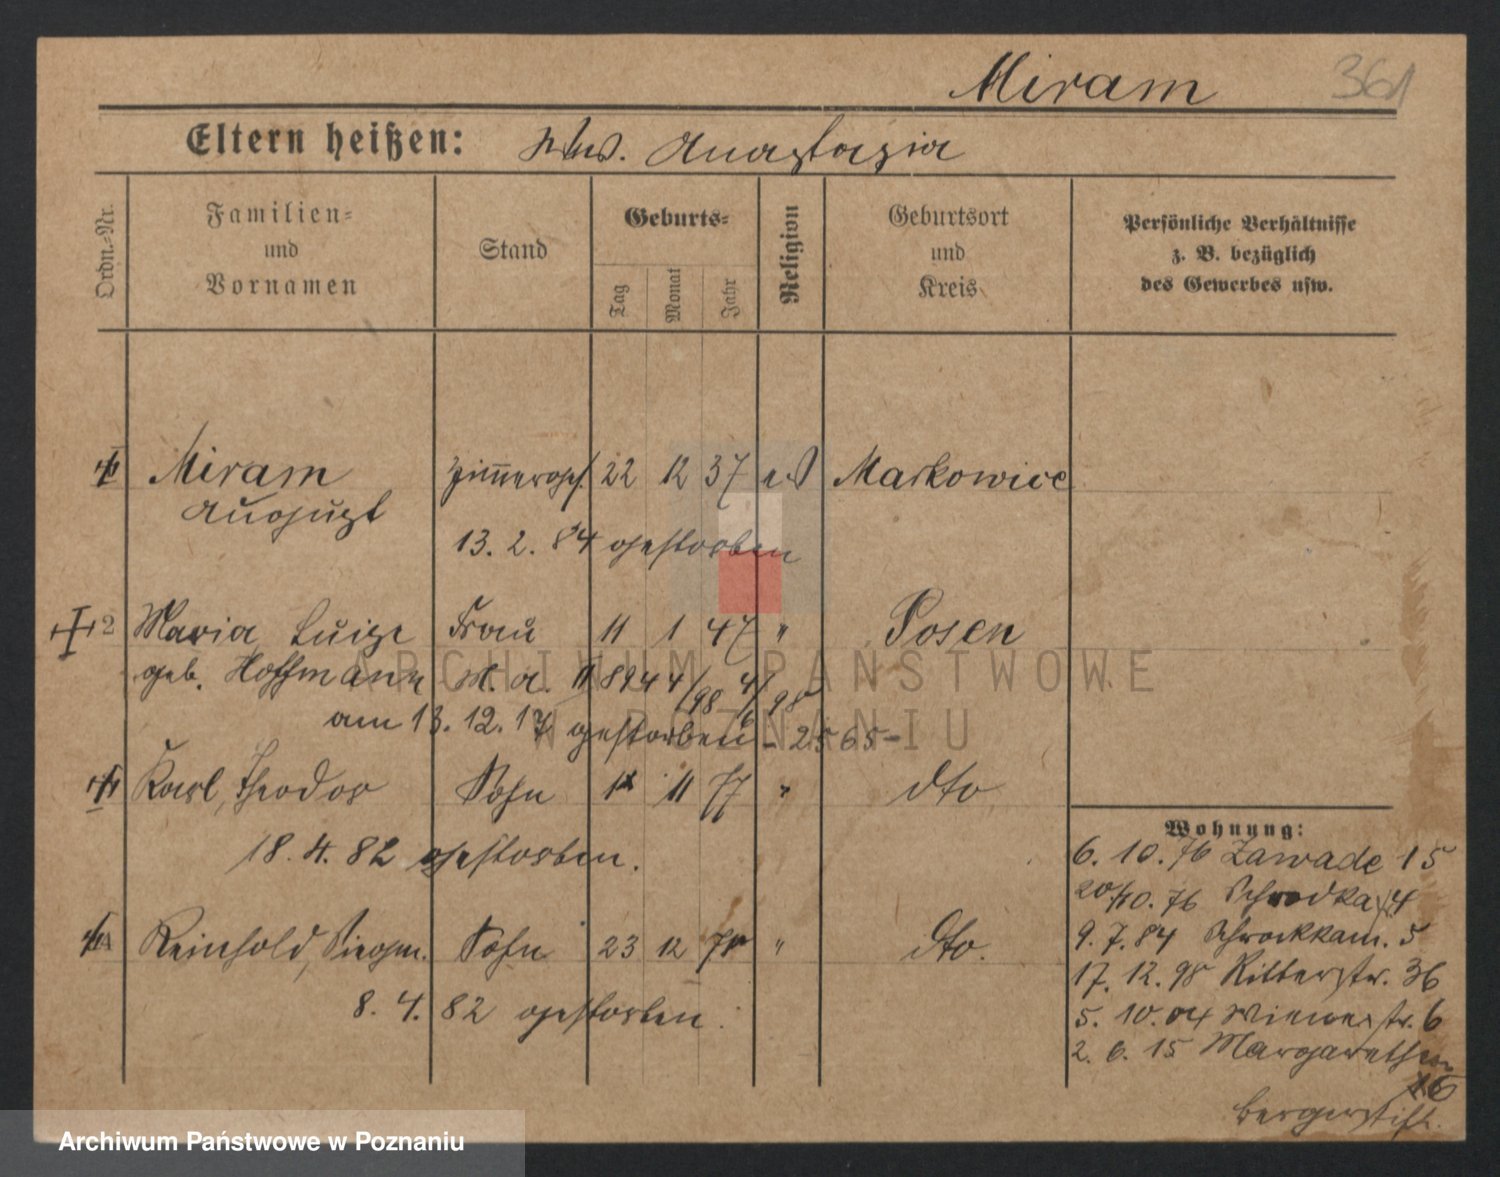 Miram 361
Eltern heißen: Anastasia
Ordn.=Nr.
Familien=
und
Vornamen
Stand
Geburts=
Tag
Monat
Jahr
Religion
Geburtsort
und
Kreis
Persönliche Verhältnisse
z. B. bezüglich
des Gewerbes usw.
1 Miram Zimmerges. 22 12 37 ev Markowice
August
13. 2. 84 gestorben
2 Maria Luise Frau 11 1 47 " Posen
geb. Hoffmann 4/98 4/6 98
am 13. 12. 17 gestorben - 2565 -
Karl, Theodor Sohn 11 77 " dto
18. 4. 82 gestorben.
Reinhold, Siegm. Sohn 23 12 " dto.
8. 4. 82 gestorben.
Wohnung:
6. 10. 76 Zawade 15
20/10. 76 Schrodka 4
9. 7. 84 5
17. 12. 98 Ritterstr. 36
5. 10. 04 6
2. 6. 15 Margarethen
16
Bergerstift.
ARCHIWUM PAŃSTWOWE
W POZNANIU
Archiwum Państwowe w Poznaniu